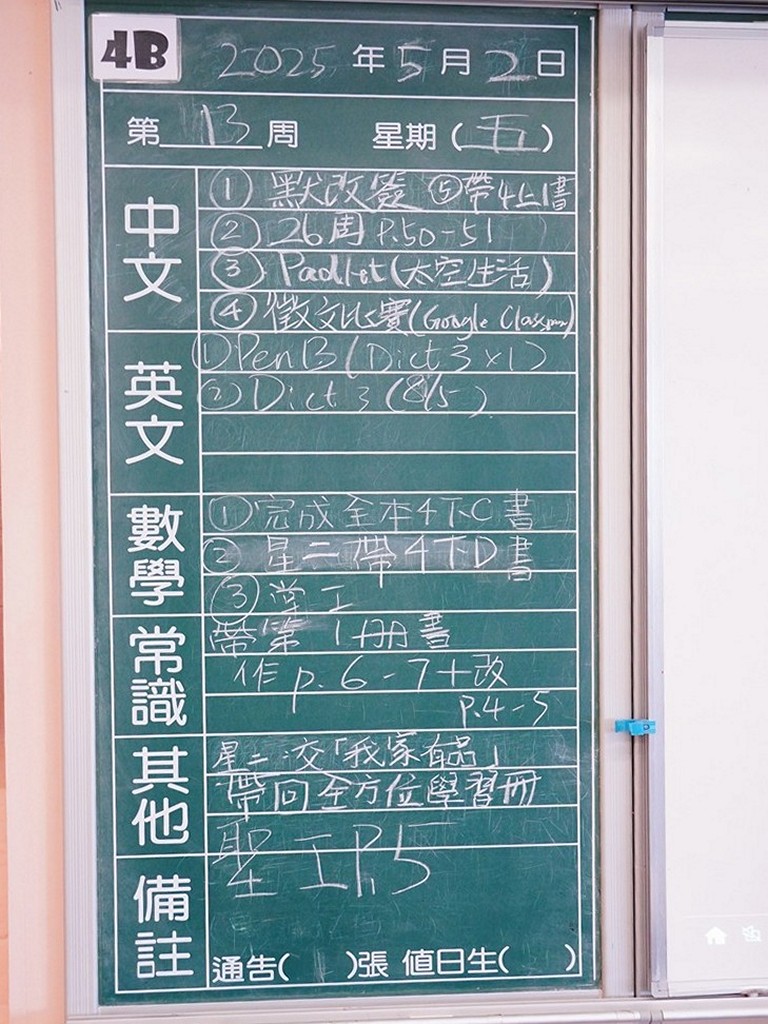 4B
2025年5月2日
第13周 星期(五)
中文
① 默改簽 ⑤帶4上1書
② 26周 P.50-51
③ Padlet(太空生活)
④ 徵文比賽(Google Classroom)
英文
① Pen B (Dict 3 x1)
② Dict 3 (8/5)
數學
① 完成全本4下C書
② 星二帶4下D書
③ 堂工
常識
帶第1冊書
作 p.6-7+改
p.4-5
其他
星二交「我家有品」
帶回全方位學習冊
聖工P.5
備註
通告( )張 值日生( )